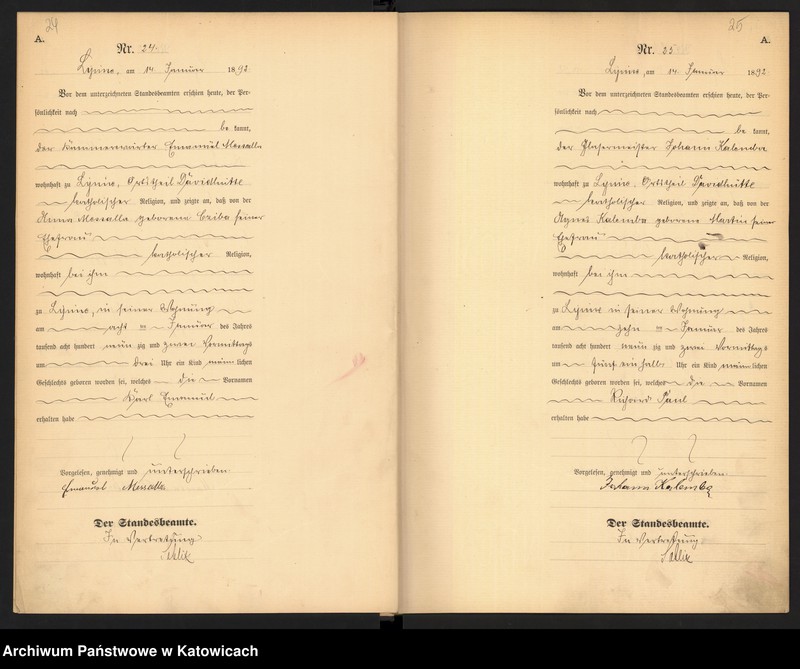 24
A.
Nr. 24.
Lipine, am 14 Januar 1892
Vor dem unterzeichneten Standesbeamten erschien heute, der Per-
sönlichkeit nach
be kannt,
der Emanuel Messalla
wohnhaft zu Lipine, Ortstheil Davidhütte
katholischer Religion, und zeigte an, daß von der
Anna Messalla geborene Cziba seiner
Ehefrau
katholischer Religion,
wohnhaft bei ihm
zu Lipine, in seiner Wohnung
am acht ten Januar des Jahres
tausend acht hundert neun zig und zwei Vormittags
um drei Uhr ein Kind männlichen
Geschlechts geboren worden sei, welches die Vornamen
Karl Emanuel
erhalten habe
Vorgelesen, genehmigt und unterschrieben
Emanuel Messalla
Der Standesbeamte.
In Vertretung
25
A.
Nr. 25
Lipine, am 14. Januar 1892
Vor dem unterzeichneten Standesbeamten erschien heute, der Per-
sönlichkeit nach
be kannt,
der Glasermeister Johann Kalemba
wohnhaft zu Lipine, Ortstheil Davidhütte
katholischer Religion, und zeigte an, daß von der
Agnes Kalemba geborene Martin seiner
Ehefrau
katholischer Religion,
wohnhaft bei ihm
zu Lipine in seiner Wohnung
am zehn ten Januar des Jahres
tausend acht hundert neun zig und zwei Vormittags
um fünf einhalb Uhr ein Kind männlichen
Geschlechts geboren worden sei, welches die Vornamen
Richard Paul
erhalten habe
Vorgelesen, genehmigt und unterschrieben
Johann Kalemba
Der Standesbeamte.
In Vertretung
Archiwum Państwowe w Katowicach